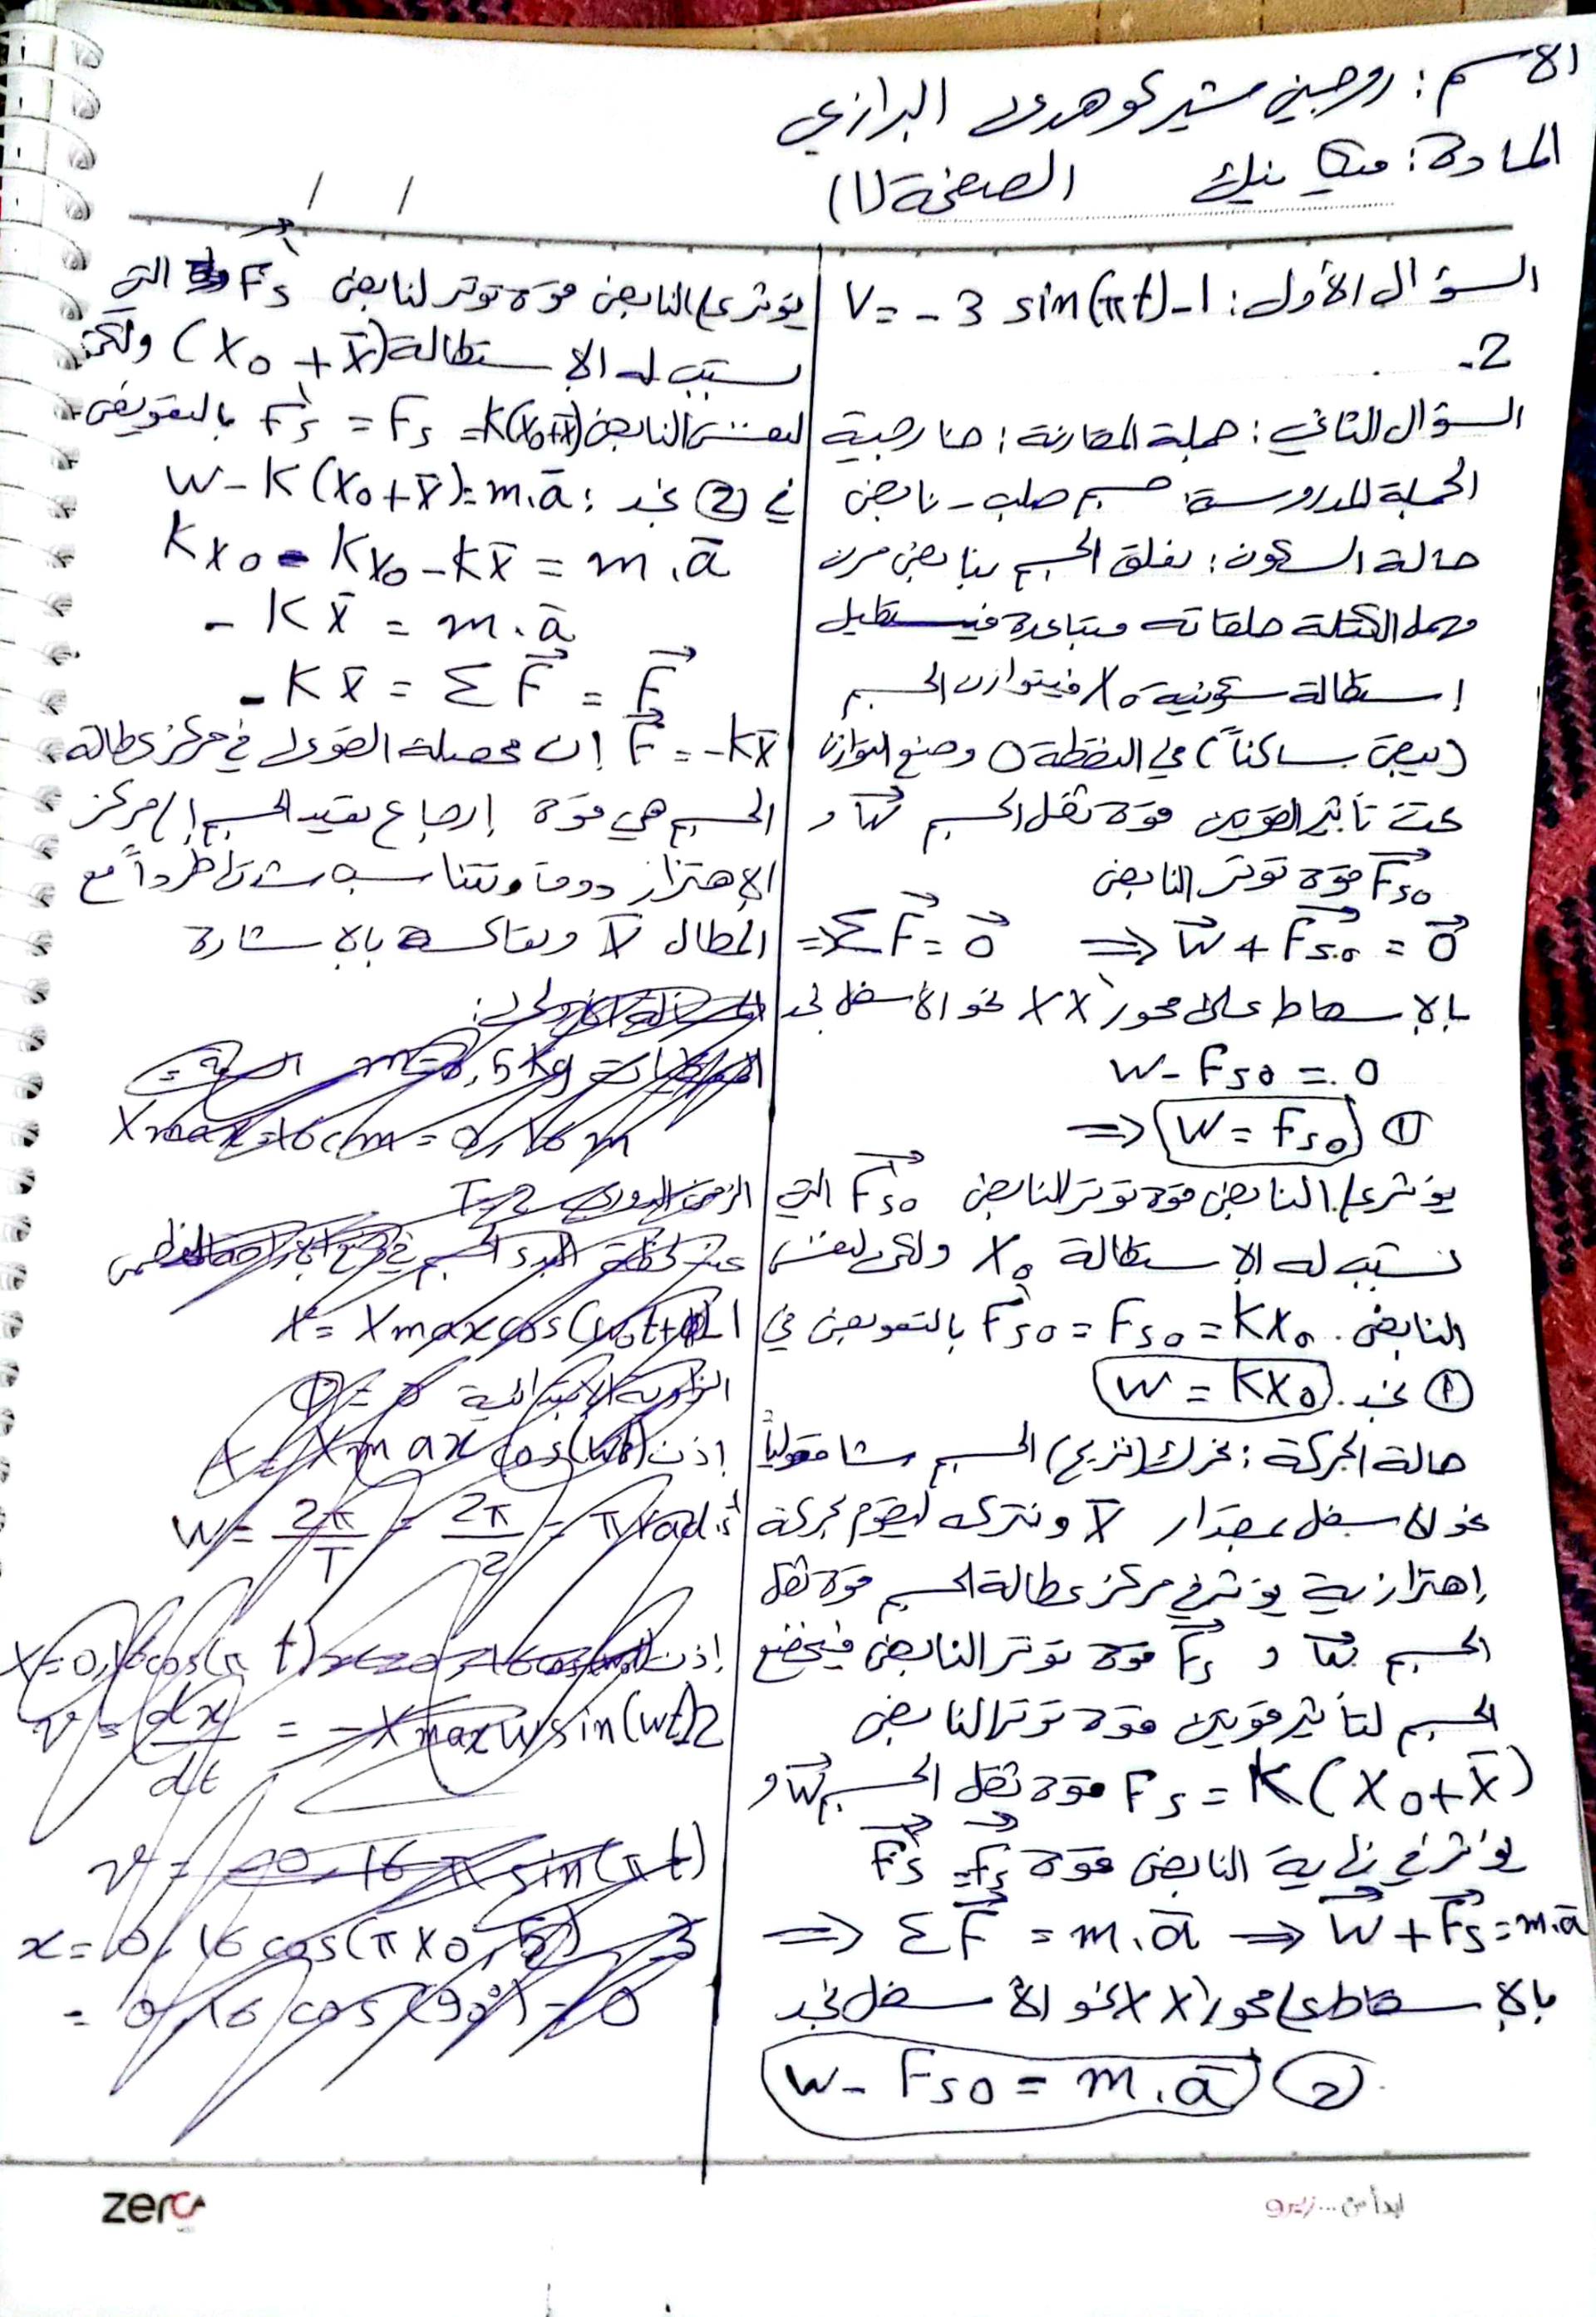 الاسم: روجين شيركو هدى البرازي
المادة: ميكانيك الصفحة (1)
السؤال الأول: 1- V = - 3 sin(πt)
2-
السؤال الثاني: جملة المقارنة: خارجية
الجملة المدروسة: جسم صلب - نابض
حالة السكون: نعلق الجسم بنابض مرن
مهمل الكتلة حلقاته متباعدة فيستطيل
إستطالة سكونية X₀ فيتوازن الجسم
(يبقى ساكناً) في النقطة O وضع التوازن
تحت تأثير القوتين قوة ثقل الجسم W⃗ و
F⃗s₀ قوة توتر النابض
⇒ ΣF⃗ = 0⃗ ⇒ W⃗ + F⃗s.₀ = 0⃗
بالإسقاط على محور X'X نحو الأسفل نجد
W - Fs₀ = 0
⇒ W = Fs₀ ①
يؤثر على النابض قوة توتر النابض F⃗'s₀ التي
تسبب له الإستطالة X₀ ولكن لنفس
النابض. F's₀ = Fs₀ = KX₀ بالتعويض في
① نجد. W = KX₀
حالة الحركة: نحرك (نزيح) الجسم شاقولياً
نحو الأسفل بمقدار X̄ ونتركه ليقوم بحركة
إهتزازية يؤثر في مركز عطالة الجسم قوة ثقل
الجسم W⃗ و F⃗s قوة توتر النابض فيخضع
الجسم لتأثير قوتين قوة توتر النابض
Fs = K(X₀+X̄) قوة ثقل الجسم W⃗ و
يؤثر في نهاية النابض قوة F⃗s = F⃗'s
⇒ ΣF⃗ = m.ā ⇒ W⃗ + F⃗s = m.ā
بالإسقاط على محور X'X نحو الأسفل نجد
W - Fs₀ = m.ā ②
يؤثر على النابض قوة توتر النابض F⃗'s التي
تسبب له الإستطالة (X₀ + X̄) ولكن
لنفس النابض F's = Fs = K(X₀+X̄) بالتعويض
في ② نجد: W - K(X₀+X̄) = m.ā
KX₀ - KX₀ - KX̄ = m.ā
- KX̄ = m.ā
- KX̄ = ΣF⃗ = F⃗
F⃗ = -KX̄ إن محصلة القوى في مركز عطالة
الجسم هي قوة إرجاع تعيد الجسم إلى مركز
الإهتزاز دوماً وتتناسب شدتها طرداً مع
المطال X̄ وتعاكسه بالإشارة
m = 0,5 kg
Xmax = 16 cm = 0,16 m
الزمن الدوري T = 2
1- X = Xmax cos(ω₀t+φ)
الزاوية الابتدائية φ = 0
إذن X = Xmax cos(ωt)
W = 2π/T = 2π/2 = π rad.s⁻¹
إذن X = 0,16 cos(π t)
2- v = dx/dt = - Xmax W sin(wt)
v = -0,16 π sin(π t)
3- x = 0,16 cos(π × 0,5)
= 0,16 cos(90°) = 0
zero
ابدأ من ... زيرو